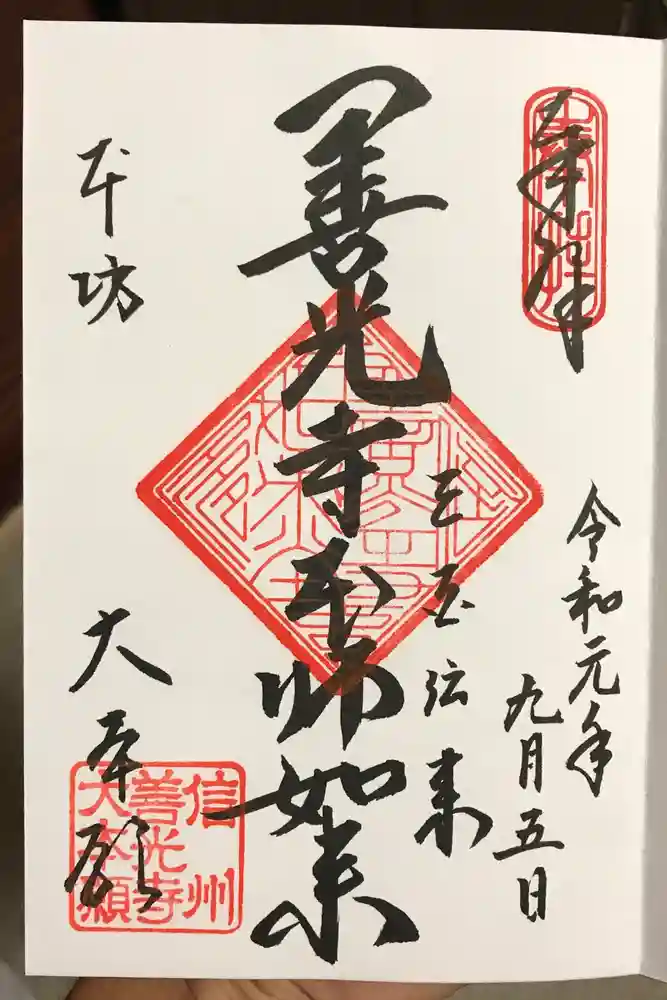 奉拝
令和元年
九月五日
三国伝来
善光寺本師如来
本坊
大本願
信州
善光寺
大本願